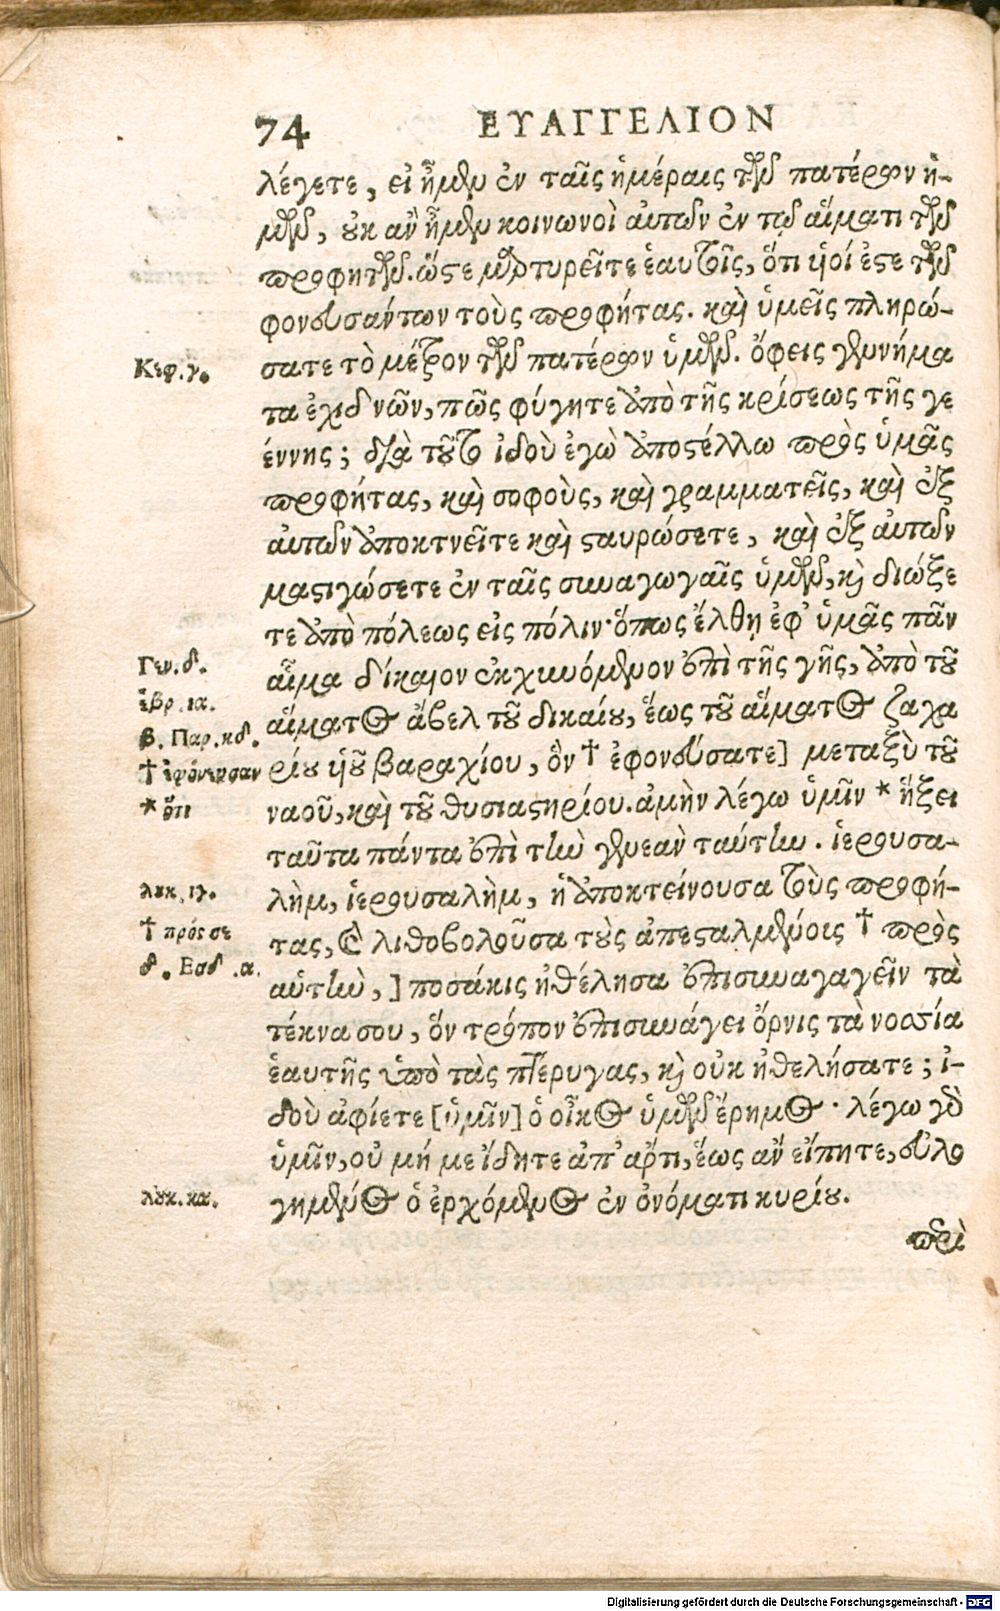 74 ΕΥΑΓΓΕΛΙΟΝ
λέγετε, εἰ ἦμεν ἐν ταῖς ἡμέραις τῶν πατέρων ἡ-
μῶν, οὐκ ἂν ἦμεν κοινωνοὶ αὐτῶν ἐν τῷ αἵματι τῶν
προφητῶν. ὥστε μαρτυρεῖτε ἑαυτοῖς, ὅτι υἱοί ἐστε τῶν
φονευσάντων τοὺς προφήτας. καὶ ὑμεῖς πληρώ-
Κεφ. γ. σατε τὸ μέτρον τῶν πατέρων ὑμῶν. ὄφεις γεννήμα
τα ἐχιδνῶν, πῶς φύγητε ἀπὸ τῆς κρίσεως τῆς γε
έννης; διὰ τοῦτο ἰδοὺ ἐγὼ ἀποστέλλω πρὸς ὑμᾶς
προφήτας, καὶ σοφοὺς, καὶ γραμματεῖς, καὶ ἐξ
αὐτῶν ἀποκτνεῖτε καὶ σταυρώσετε, καὶ ἐξ αὐτῶν
μαστιγώσετε ἐν ταῖς συναγωγαῖς ὑμῶν, καὶ διώξε
τε ἀπὸ πόλεως εἰς πόλιν· ὅπως ἔλθῃ ἐφ' ὑμᾶς πᾶν
Γεν. δ. αἷμα δίκαιον ἐκχυνόμενον ἐπὶ τῆς γῆς, ἀπὸ τοῦ
ἑβρ. ια. αἵματος ἄβελ τοῦ δικαίου, ἕως τοῦ αἵματος ζαχα
β. Παρ. κδ.
† ἐφόνευσαν ρίου υἱοῦ βαραχίου, ὃν † ἐφονεύσατε] μεταξὺ τοῦ
* ὅτι ναοῦ, καὶ τοῦ θυσιαστηρίου. ἀμὴν λέγω ὑμῖν * ἥξει
ταῦτα πάντα ἐπὶ τὴν γενεὰν ταύτην. ἱερουσα-
λουκ. ιγ. λὴμ, ἱερουσαλὴμ, ἡ ἀποκτείνουσα τοὺς προφή-
† πρός σε τας, καὶ λιθοβολοῦσα τοὺς ἀπεσταλμένοις † πρὸς
δ. Εσδ. α. αὐτὴν,] ποσάκις ἠθέλησα ἐπισυναγαγεῖν τὰ
τέκνα σου, ὅν τρόπον ἐπισυνάγει ὄρνις τὰ νοσσία
ἑαυτῆς ὑπὸ τὰς πτέρυγας, καὶ οὐκ ἠθελήσατε; ἰ-
δοὺ ἀφίετε [ὑμῖν] ὁ οἶκος ὑμῶν ἔρημος. λέγω γὰρ
ὑμῖν, οὐ μή με ἴδητε ἀπ' ἄρτι, ἕως ἂν εἴπητε, εὐλο
λουκ. κα. γημένος ὁ ἐρχόμενος ἐν ὀνόματι κυρίου.
περὶ
Digitalisierung gefördert durch die Deutsche Forschungsgemeinschaft - DFG